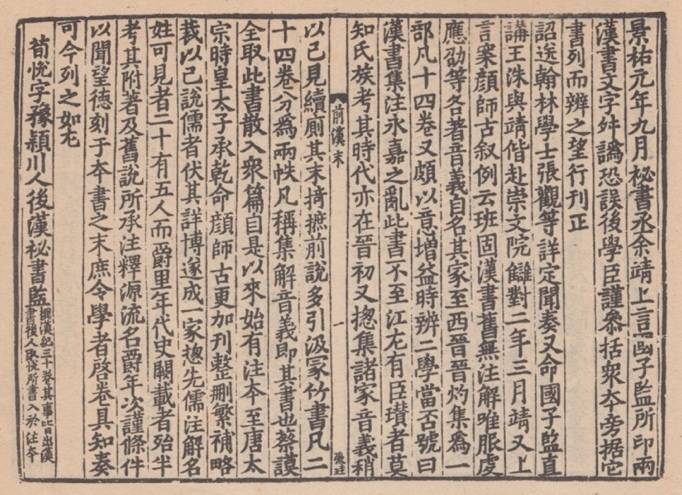 景祐元年九月祕書丞余靖上言國子監所印兩
漢書文字舛譌恐誤後學臣謹參括衆本旁據它
書列而辨之望行刊正
詔送翰林學士張觀等詳定聞奏又命國子監直
講王洙與靖偕赴崇文院讎對二年三月靖又上
言案顔師古叙例云班固漢書舊無注解唯服虔
應劭等各著音義自名其家至西晉晉灼集為一
部凡十四卷又頗以意增益時辨二學當否號曰
漢書集注永嘉之亂此書不至江左有臣瓚者莫
知氏族考其時代亦在晉初又揔集諸家音義稍
前漢末
一
以已見續厠其末掎摭前說多引汲冢竹書凡二
十四卷分為兩帙凡稱集解音義即其書也蔡謨
全取此書散入衆篇自是以來始有注本至唐太
宗時皇太子承乾命顔師古更加刊整刪繁補略
裁以已說儒者伏其詳博遂成一家揔先儒注解名
姓可見者二十有五人而爵里年代史闕載者殆半
考其附著及舊說所承注釋源流名爵年次謹條件
以聞望德刻于本書之末庶令學者啓卷具知奏
可今列之如左
荀悅字豫潁川人後漢祕書監撰漢紀三十卷其事皆出漢
書後人取悅所書入於注本